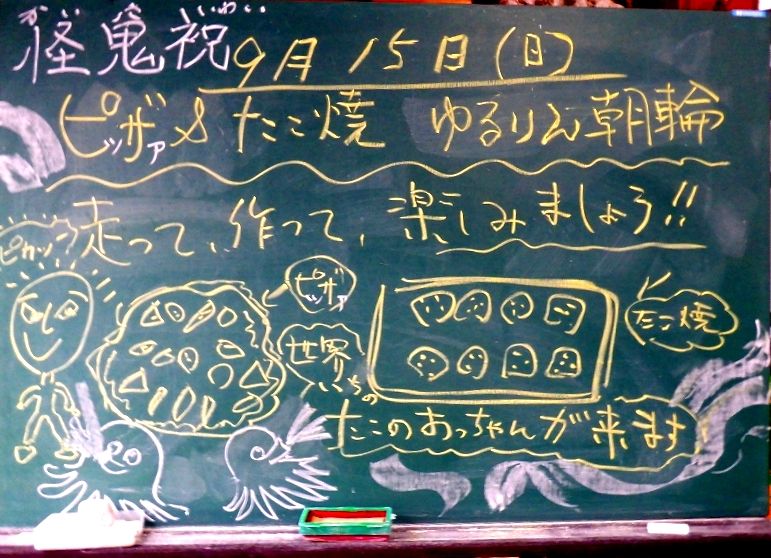 祝
いわい
9月15日(日)
ピッザァ & たこ焼 ゆるりん朝輪
走って、作って、楽しみましょう!!
ピカッ
ピッザァ
たこ焼
世界
いちの
たこのおっちゃんが来ます